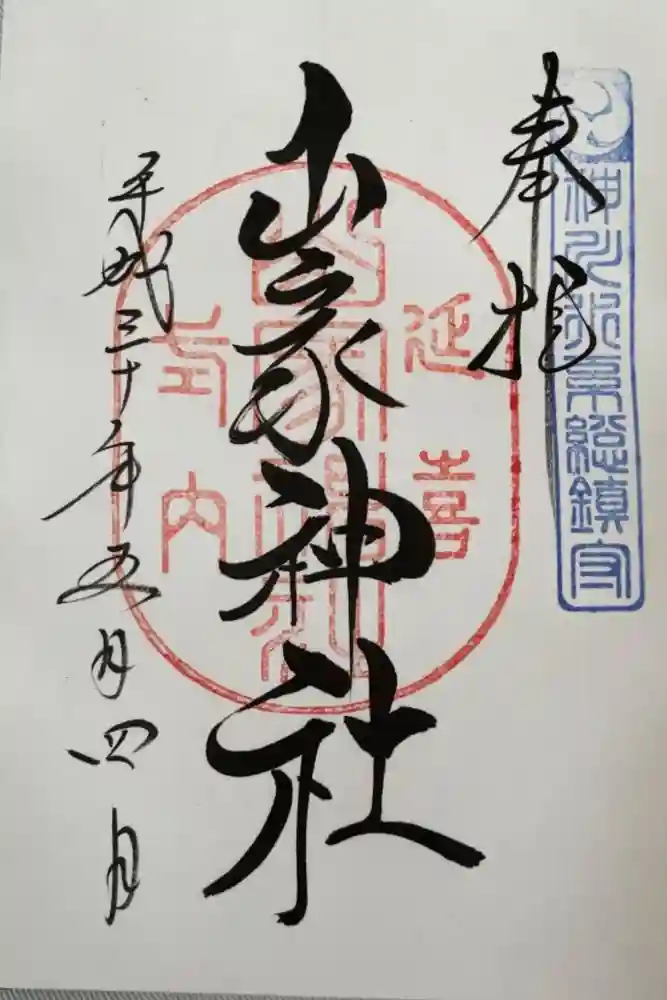 神川水系総鎮守
奉拝
延喜
山家神社
山家神社
式内
平成三十年五月四日